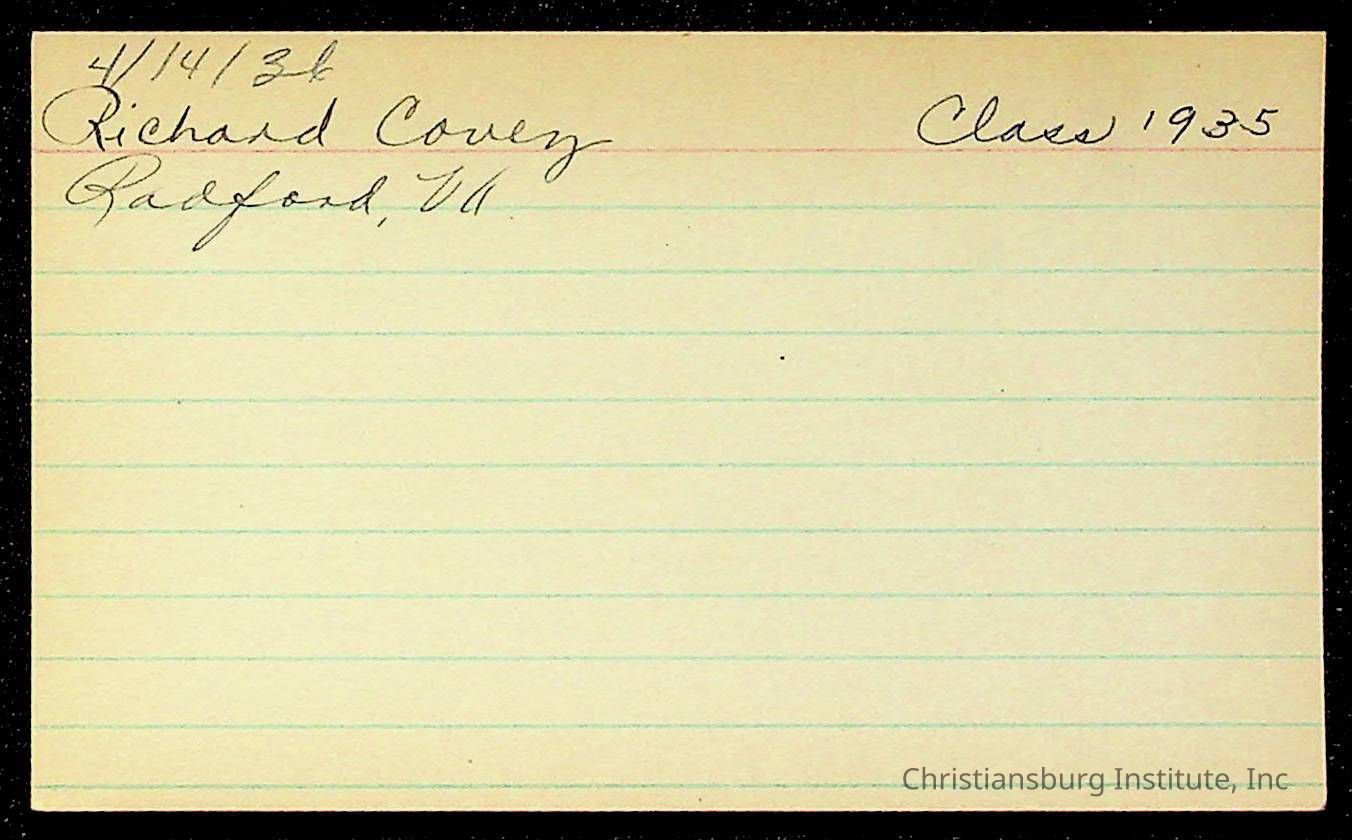 4/14/36
Richard Covey Class 1935
Radford, VA
Christiansburg Institute, Inc